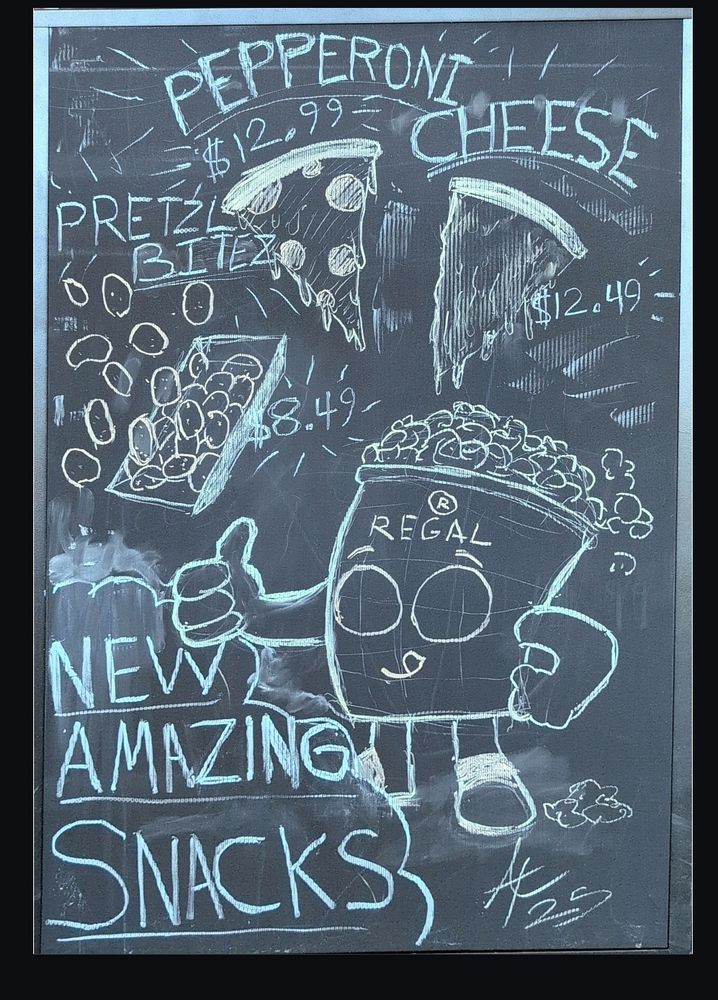 PEPPERONI
$12.99
CHEESE
$12.49
PRETZL
BITEZ
$8.49
®
REGAL
NEW
AMAZING
SNACKS
25